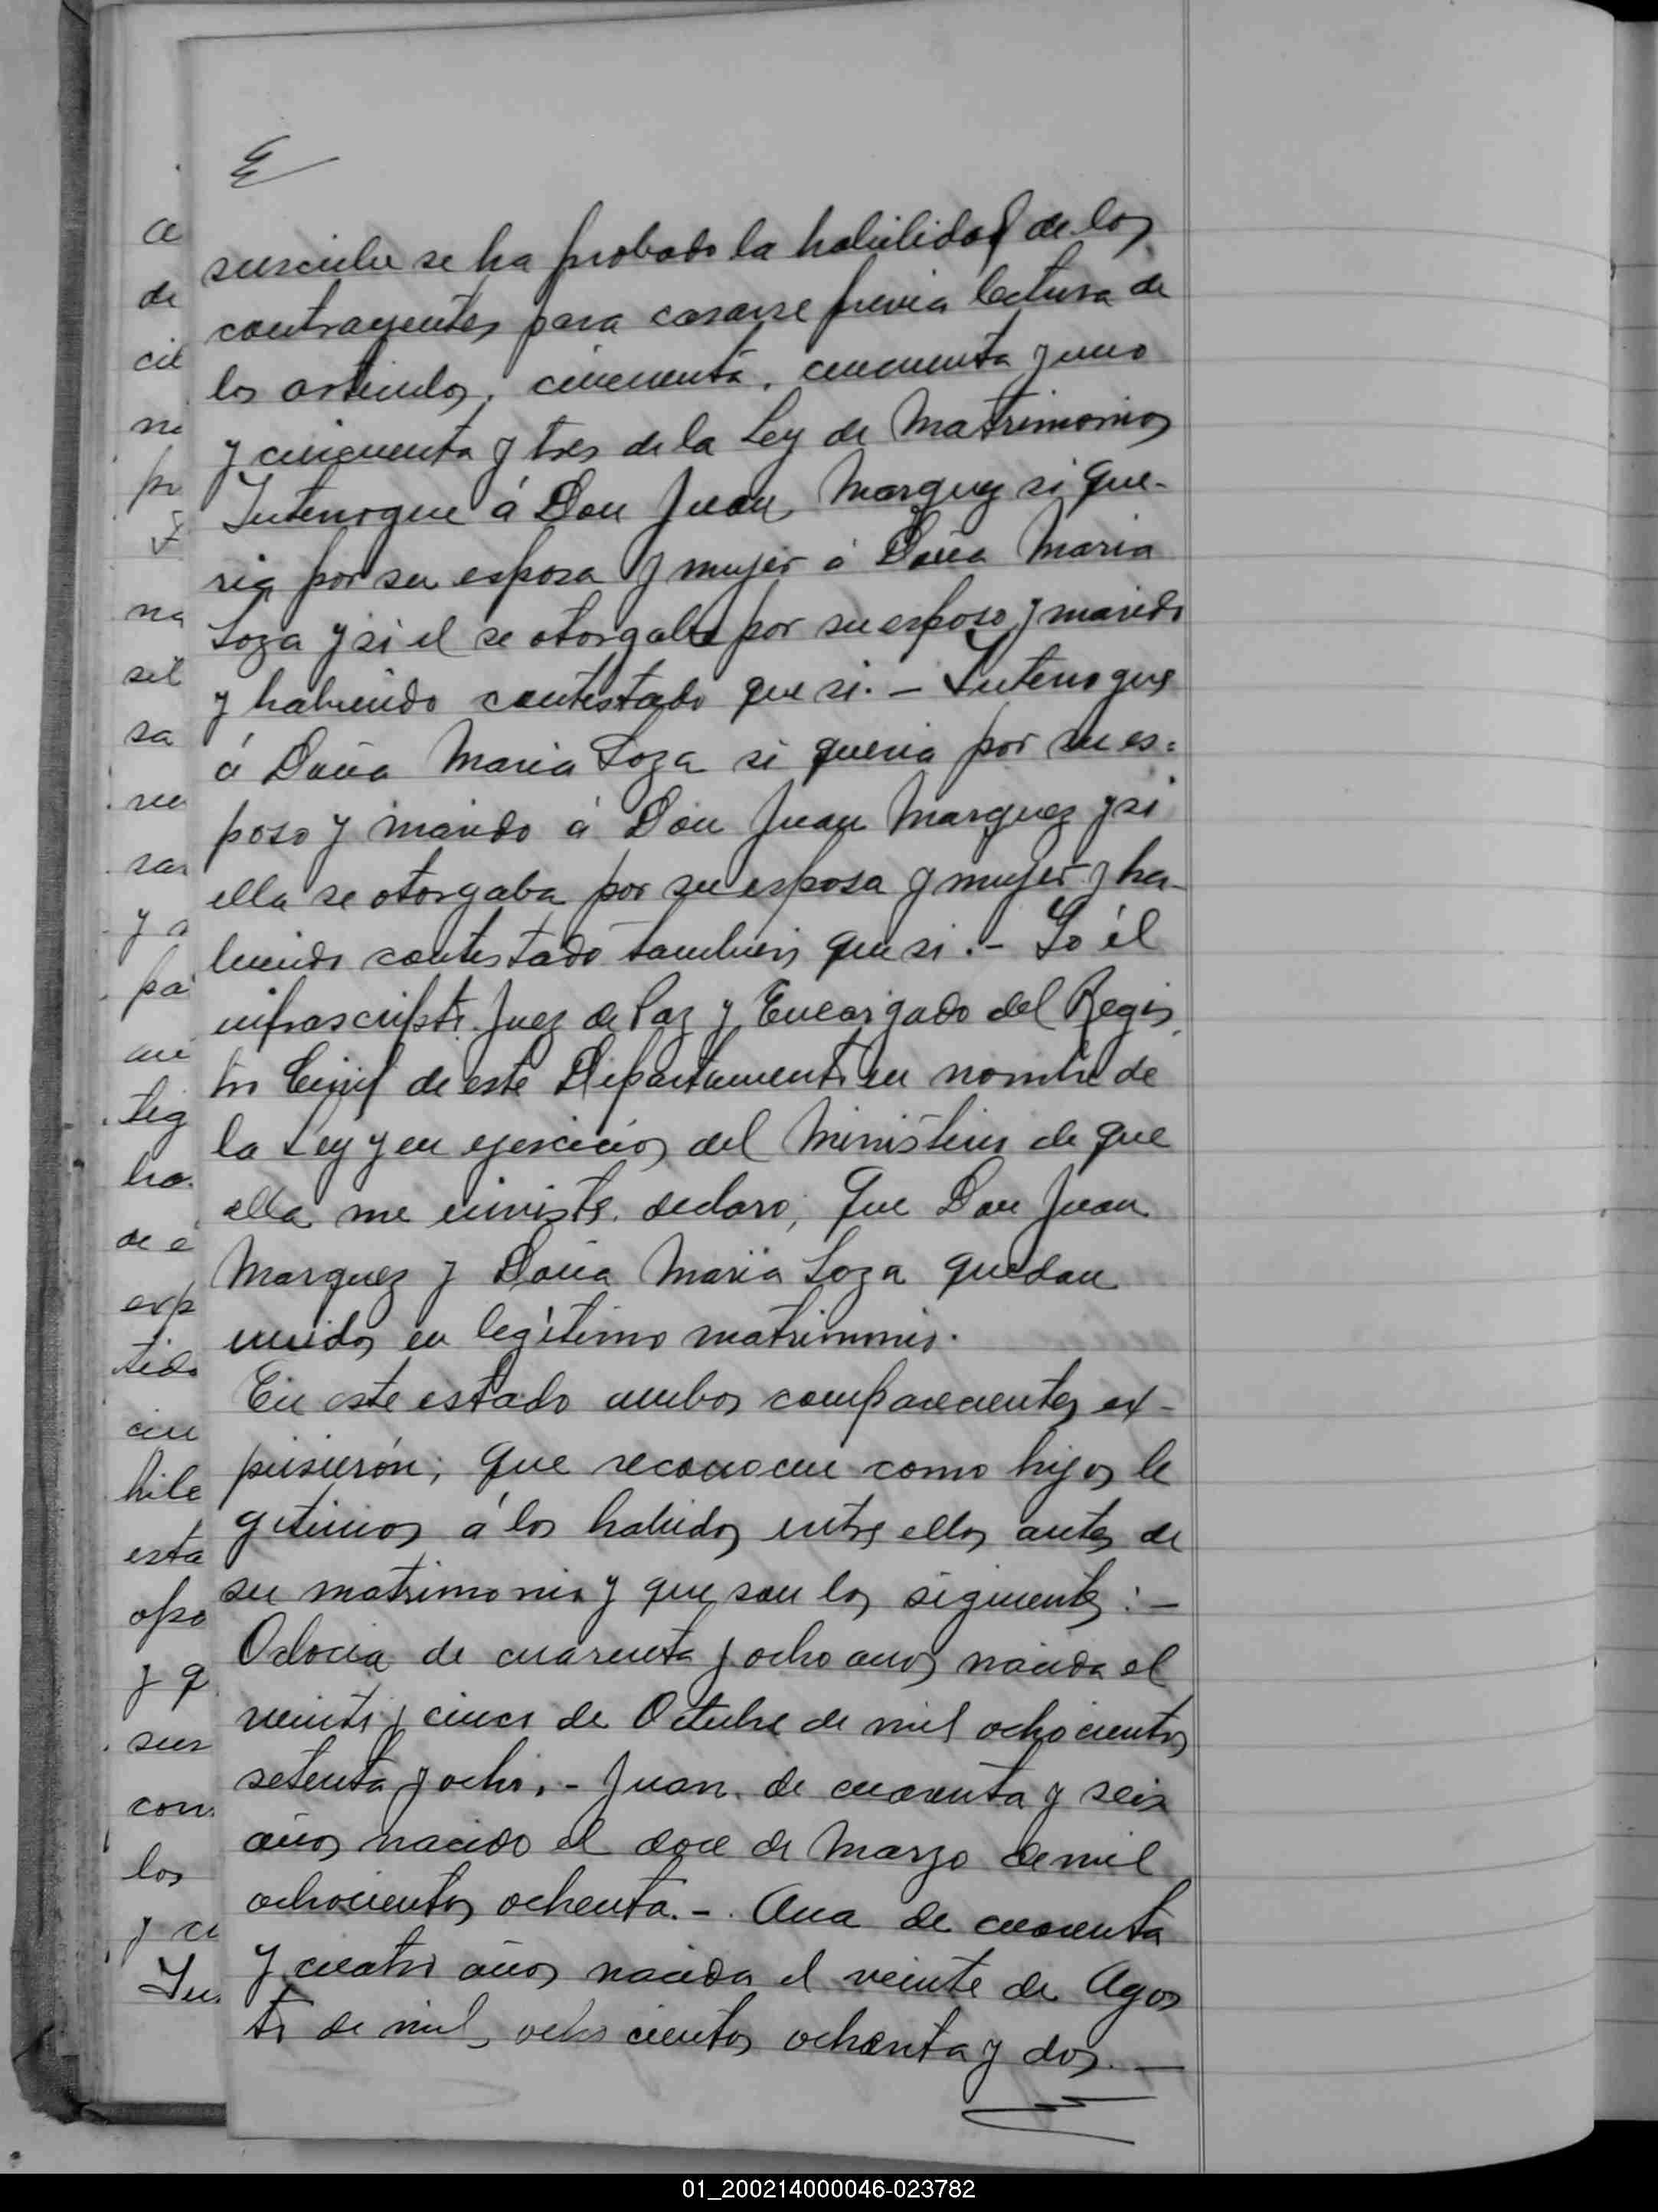 suscribe se ha probado la habilidad de los
contrayentes para casarse previa lectura de
los articulos, cincuenta, cincuenta y uno
y cincuenta y tres de la Ley de Matrimonios
Interrogue á Don Juan Marquez si que-
ria por su esposa y mujer á Doña Maria
Loza y si el se otorgaba por su esposo y marido
y habiendo contestado que si. - Interrogue
á Doña Maria Loza si queria por su es=
poso y marido á Don Juan Marquez y si
ella se otorgaba por su esposa y mujer y ha-
biendo contestado tambien que si. - Yo él
infrascripto Juez de Paz y Encargado del Regis
tro Civil de este Departamento en nombre de
la Ley y en ejercicio del Ministerio de que
ella me inviste, declaro; que Don Juan
Marquez y Doña Maria Loza quedan
unidos en legítimo matrimonio.
En este estado ambos comparecientes ex-
pusierón; que reconocen como hijos le
gitimos á los habidos entre ellos antes de
su matrimonio y que son los siguientes: -
Odocia de cuarenta y ocho años nacida el
veinte y cinco de Octubre de mil ochocientos
setenta y ocho. - Juan de cuarenta y seis
años nacido el doce de Marzo de mil
ochocientos ochenta. - Ana de cuarenta
y cuatro años nacida el veinte de Agos
to de mil ochocientos ochenta y dos. -
de
cil
na
sa
y a
pa
tig
de é
exp
tido
hile
esta
opo
y q
sus
con
los
01_200214000046-023782